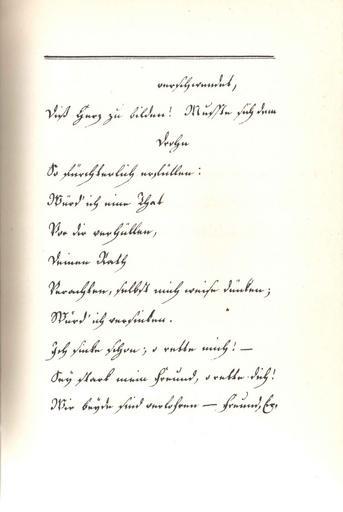 verschwendet,
Dieß Herz zu bilden! Mußte sich dein
Drohn
So fürchterlich erfüllen:
Würd' ich eine That
Vor dir verhüllen,
Deinen Rath
Verachten, selbst mich weise dünken;
Würd' ich versinken.
Ich sinke schon; o rette mich! —
Sey stark mein Freund, o rette dich!
Wir beyde sind verlohren — Freund, Er,